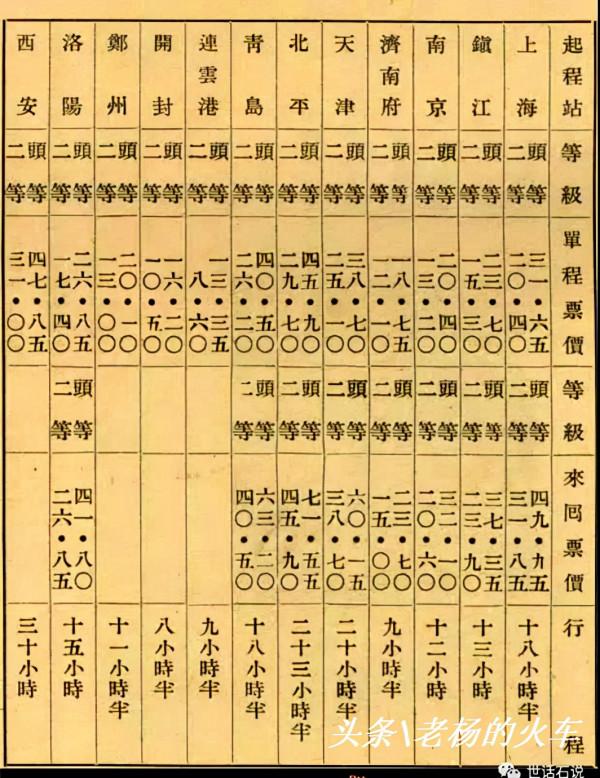 起程站
等級
單程票價
等級
來囘票價
行程
上海
頭等
二等
三一・六五
二〇・四〇
頭等
二等
四九・九五
三一・八五
十八小時半
鎮江
頭等
二等
二三・七〇
一五・三〇
頭等
二等
三七・三五
二三・九〇
十三小時
南京
頭等
二等
二〇・四〇
一三・二〇
頭等
二等
三二・一〇
二〇・六〇
十二小時
濟南府
頭等
二等
一八・七五
一二・一〇
頭等
二等
二三・七〇
一五・〇〇
九小時半
天津
頭等
二等
三八・七〇
二五・一〇
頭等
二等
六〇・一五
三八・七〇
二十小時半
北平
頭等
二等
四五・九〇
二九・七〇
頭等
二等
七一・五五
四五・九〇
二十三小時半
青島
頭等
二等
四〇・五〇
二六・二〇
頭等
二等
六三・二〇
四〇・五〇
十八小時半
連雲港
頭等
二等
一三・三五
八・六〇
九小時半
開封
頭等
二等
一六・二〇
一〇・五〇
八小時半
鄭州
頭等
二等
二〇・一〇
一三・〇〇
十一小時半
洛陽
頭等
二等
二六・八五
一七・四〇
頭等
二等
四一・八〇
二六・八五
十五小時
西安
頭等
二等
四七・八五
三一・〇〇
三十小時
头条\老杨的火车
世话石说